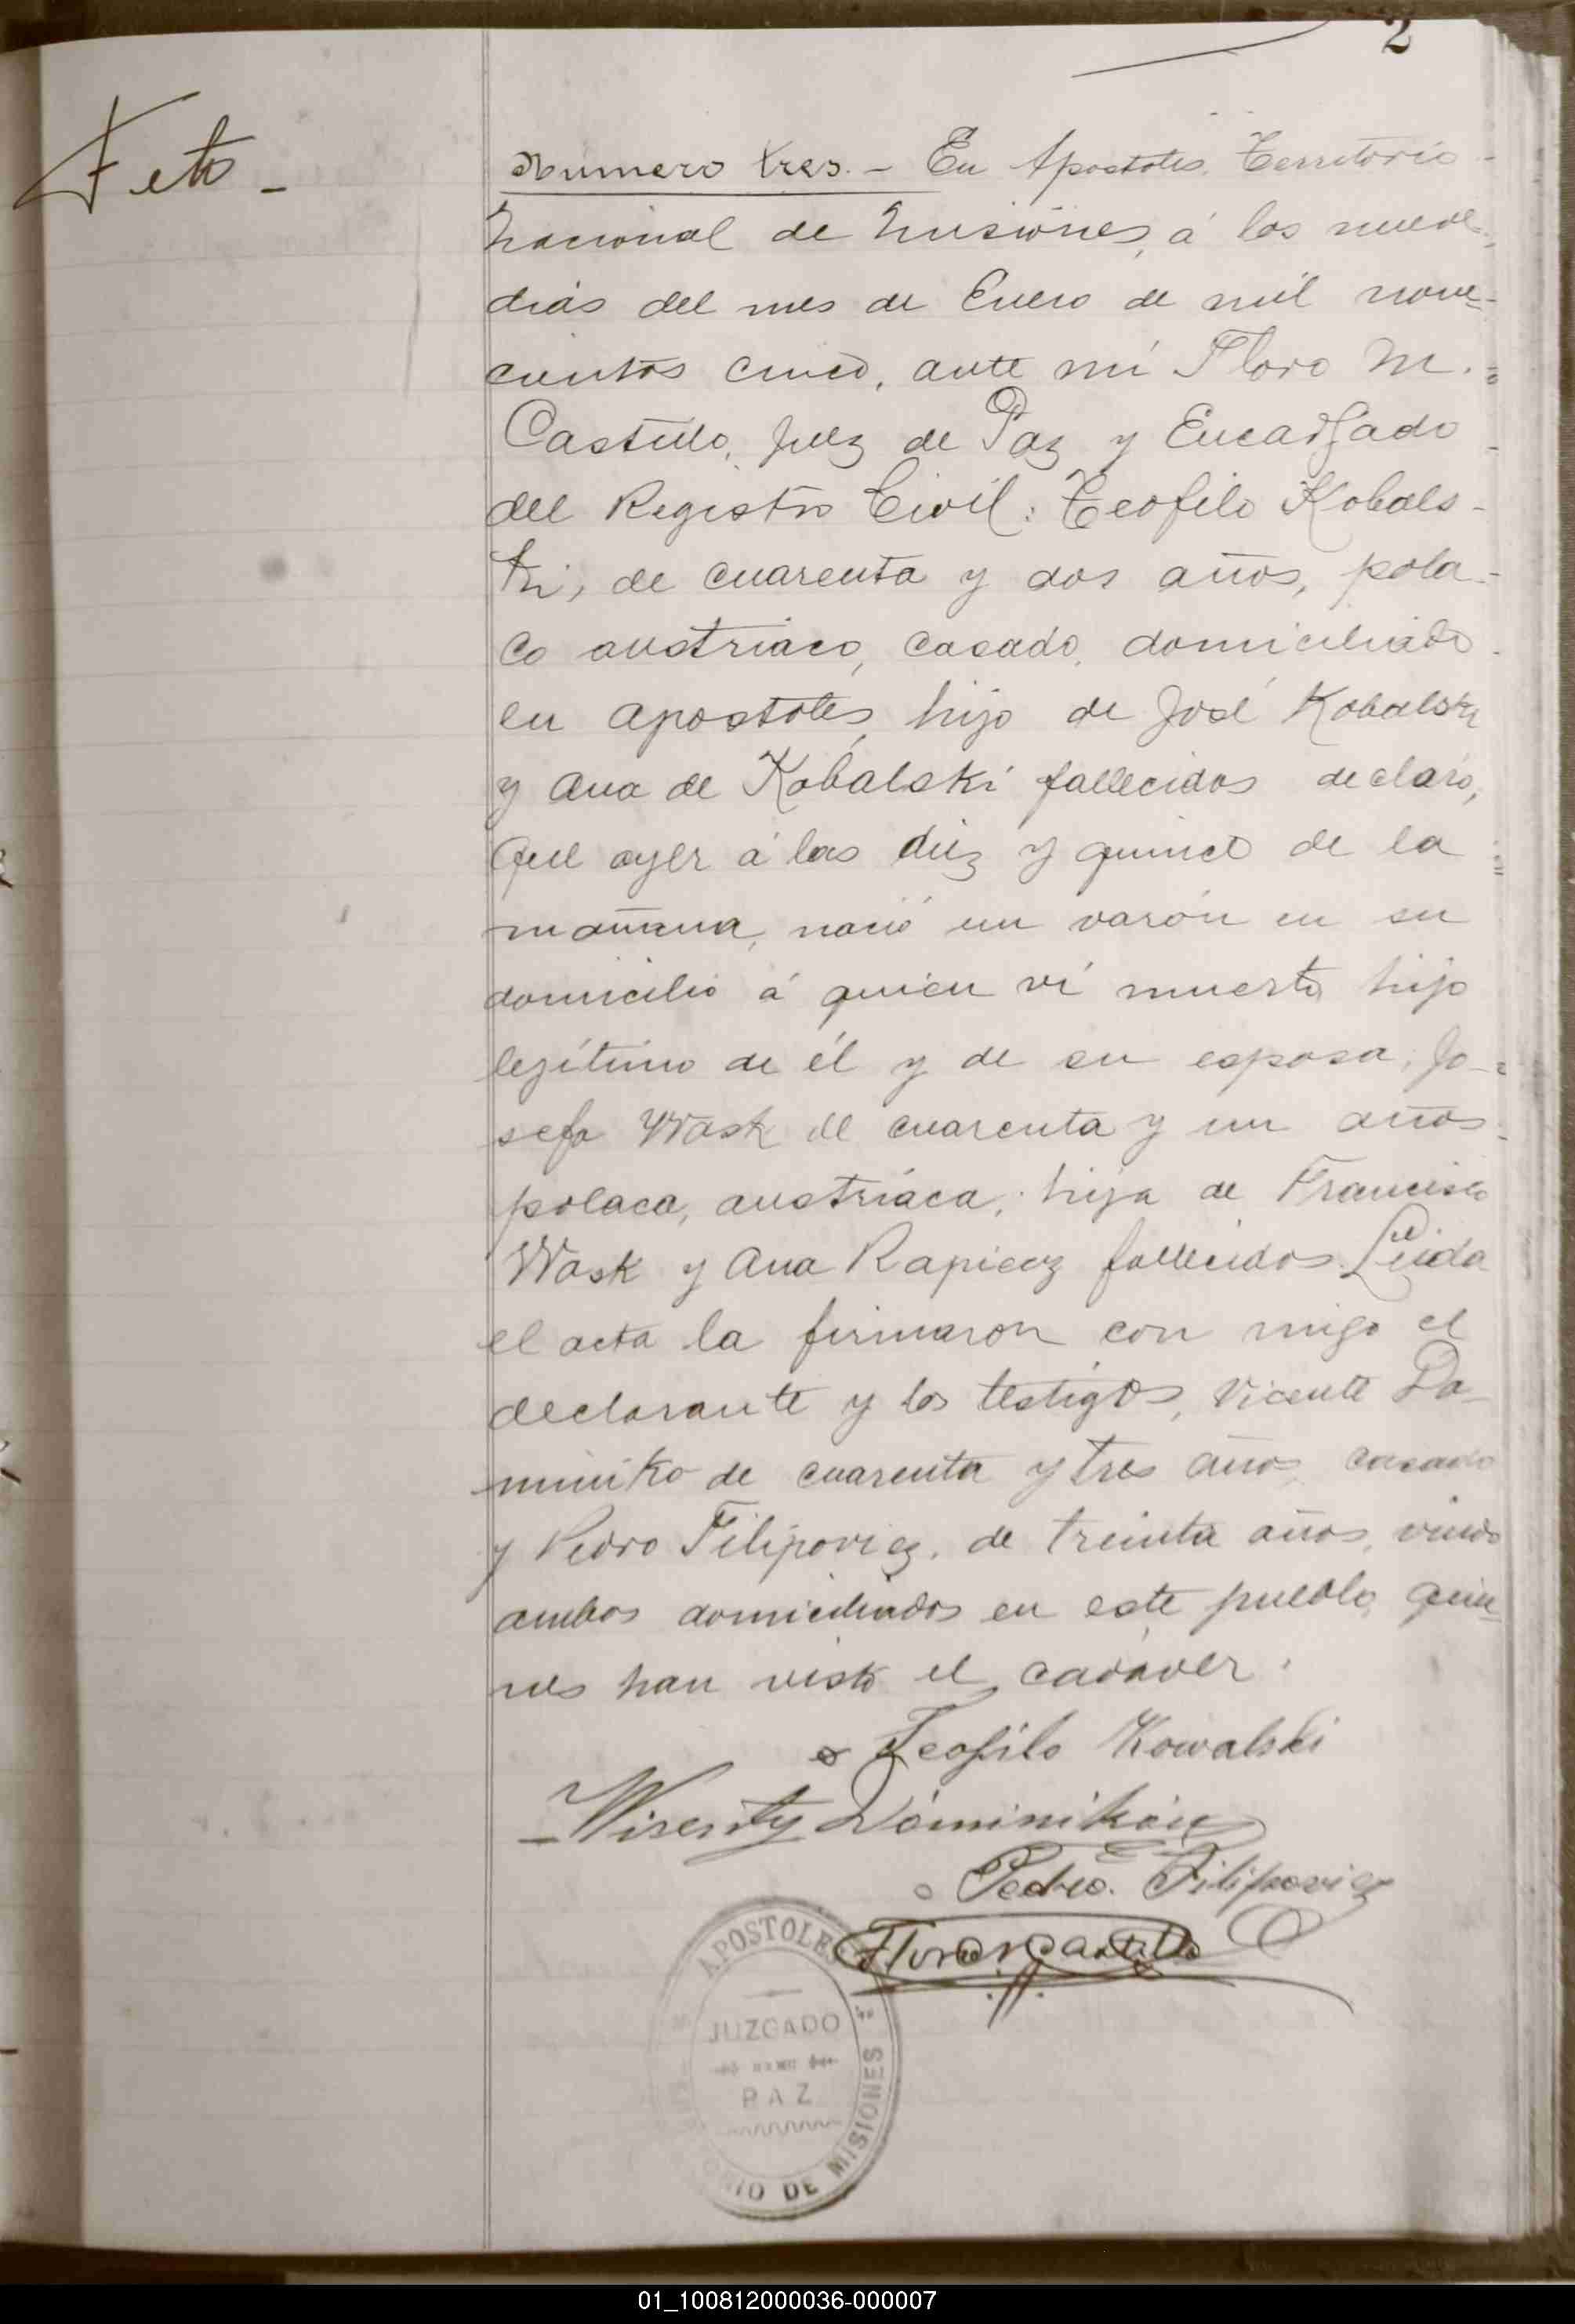 2
Feto -
Numero tres. - En Apostoles, Territorio -
Nacional de Misiones, á los nueve
dias del mes de Enero de mil nove-
cientos cinco, ante mi Floro M. =
Castillo, Juez de Paz y Encargado -
del Registro Civil: Teofilo Kobals-
ki, de cuarenta y dos años, pola-
co austriaco, casado, domiciliado
en Apostoles, hijo de José Kobalski
y Ana de Kobalski fallecidos declaró,
Que ayer á las diez y quince de la =
mañana, nació un varón en su
domicilio á quien ví muerto hijo
legítimo de él y de su esposa, Jo-
sefa Wask de cuarenta y un años
polaca, austríaca; hija de Francisco
Wask y Ana Rapiecz fallecidos. Leida
el acta la firmaron con migo el
declarante y los testigos, Vicente Do-
miniko de cuarenta y tres años, casado
y Pedro Filipovicz, de treinta años, viudo
ambos domiciliados en este pueblo, quie-
nes han visto el cadáver.
Teofilo Kowalski
Wisenty Dominikóu
Pedro. Filipovicz
Floro M Castillo
APOSTOLES
JUZGADO
PAZ
DE MISIONES
01_100812000036-000007